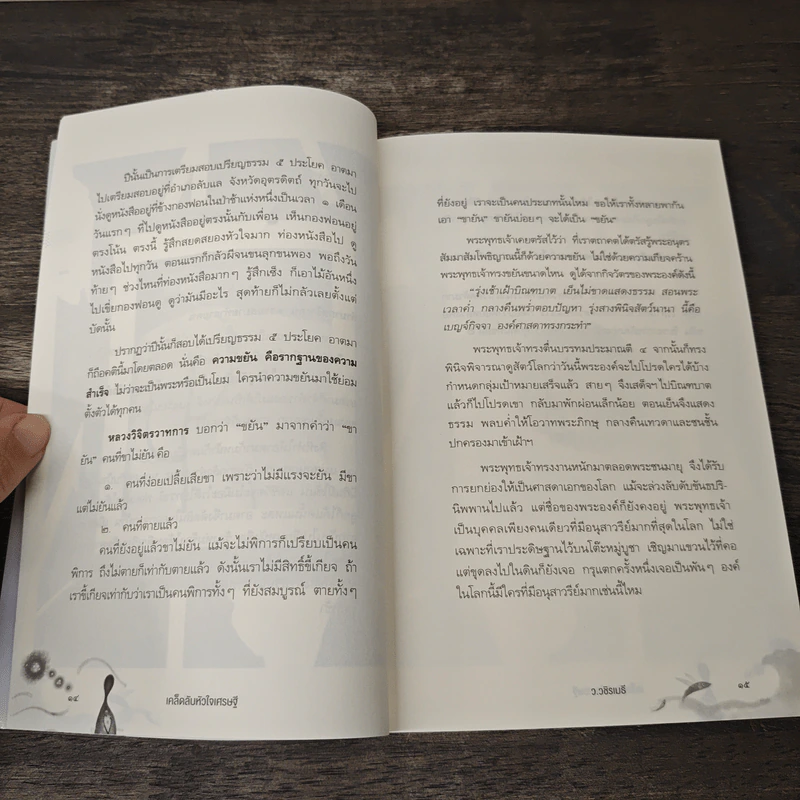 ปีนั้นเป็นการเตรียมสอบเปรียญธรรม ๕ ประโยค อาตมา
ไปเตรียมสอบอยู่ที่อำเภอลับแล จังหวัดอุตรดิตถ์ ทุกวันจะไป
นั่งดูหนังสืออยู่ที่ข้างกองฟอนในป่าช้าแห่งหนึ่งเป็นเวลา ๑ เดือน
วันแรกๆ ที่ไปดูหนังสืออยู่ตรงนั้นกับเพื่อน เห็นกองฟอนอยู่
ตรงโน้น ตรงนี้ รู้สึกสยดสยองหัวใจมาก ท่องหนังสือไป ดู
หนังสือไปทุกวัน ตอนแรกก็กลัวผีจนขนลุกขนพอง พอถึงวัน
ท้ายๆ ช่วงไหนที่ท่องหนังสือมากๆ รู้สึกเซ็ง ก็เอาไม้อันหนึ่ง
ไปเขี่ยกองฟอนดู ดูว่ามันมีอะไร สุดท้ายก็ไม่กลัวเลยตั้งแต่
บัดนั้น
ปรากฏว่าปีนั้นก็สอบได้เปรียญธรรม ๕ ประโยค อาตมา
ก็ถือคตินี้มาโดยตลอด นั่นคือ ความขยัน คือรากฐานของความ
สำเร็จ ไม่ว่าจะเป็นพระหรือเป็นโยม ใครนำความขยันมาใช้ย่อม
ตั้งตัวได้ทุกคน
หลวงวิจิตรวาทการ บอกว่า "ขยัน" มาจากคำว่า "ขา
ยัน" คนที่ขาไม่ยัน คือ
๑. คนที่ง่อยเปลี้ยเสียขา เพราะว่าไม่มีแรงจะยัน มีขา
แต่ไม่ยันแล้ว
๒. คนที่ตายแล้ว
คนที่ยังอยู่แล้วขาไม่ยัน แม้จะไม่พิการก็เปรียบเป็นคน
พิการ ถึงไม่ตายก็เท่ากับตายแล้ว ดังนั้นเราไม่มีสิทธิ์ขี้เกียจ ถ้า
เราขี้เกียจเท่ากับว่าเราเป็นคนพิการทั้งๆ ที่ยังสมบูรณ์ ตายทั้งๆ
๑๔
เคล็ดลับหัวใจเศรษฐี
ที่ยังอยู่ เราจะเป็นคนประเภทนั้นไหม ขอให้เราทั้งหลายพากัน
เอา "ขายัน" ขายันบ่อยๆ จะได้เป็น "ขยัน"
พระพุทธเจ้าเคยตรัสไว้ว่า ที่เราตถาคตได้ตรัสรู้พระอนุตร
สัมมาสัมโพธิญาณนี้ก็ด้วยความขยัน ไม่ใช่ด้วยความเกียจคร้าน
พระพุทธเจ้าทรงขยันขนาดไหน ดูได้จากกิจวัตรของพระองค์ดังนี้
"รุ่งเช้าเฝ้าบิณฑบาต เย็นไม่ขาดแสดงธรรม สอนพระ
เวลาค่ำ กลางคืนพร่ำตอบปัญหา รุ่งสางพินิจสัตว์นานา นี้คือ
เบญจ์กิจจา องค์ศาสดาทรงกระทำ"
พระพุทธเจ้าทรงตื่นบรรทมประมาณตี ๔ จากนั้นก็ทรง
พินิจพิจารณาดูสัตว์โลกว่าวันนี้พระองค์จะไปโปรดใครได้บ้าง
กำหนดกลุ่มเป้าหมายเสร็จแล้ว สายๆ จึงเสด็จฯไปบิณฑบาต
แล้วก็ไปโปรดเขา กลับมาพักผ่อนเล็กน้อย ตอนเย็นจึงแสดง
ธรรม พลบค่ำให้โอวาทพระภิกษุ กลางคืนเทวดาและชนชั้น
ปกครองมาเข้าเฝ้าฯ
พระพุทธเจ้าทรงงานหนักมาตลอดพระชนมายุ จึงได้รับ
การยกย่องให้เป็นศาสดาเอกของโลก แม้จะล่วงลับดับขันธปริ-
นิพพานไปแล้ว แต่ชื่อของพระองค์ก็ยังคงอยู่ พระพุทธเจ้า
เป็นบุคคลเพียงคนเดียวที่มีอนุสาวรีย์มากที่สุดในโลก ไม่ใช่
เฉพาะที่เราประดิษฐานไว้บนโต๊ะหมู่บูชา เชิญมาแขวนไว้ที่คอ
แต่ขุดลงไปในดินก็ยังเจอ กรุแตกครั้งหนึ่งเจอเป็นพันๆ องค์
ในโลกนี้มีใครที่มีอนุสาวรีย์มากเช่นนี้ไหม
ว.วชิรเมธี
๑๕